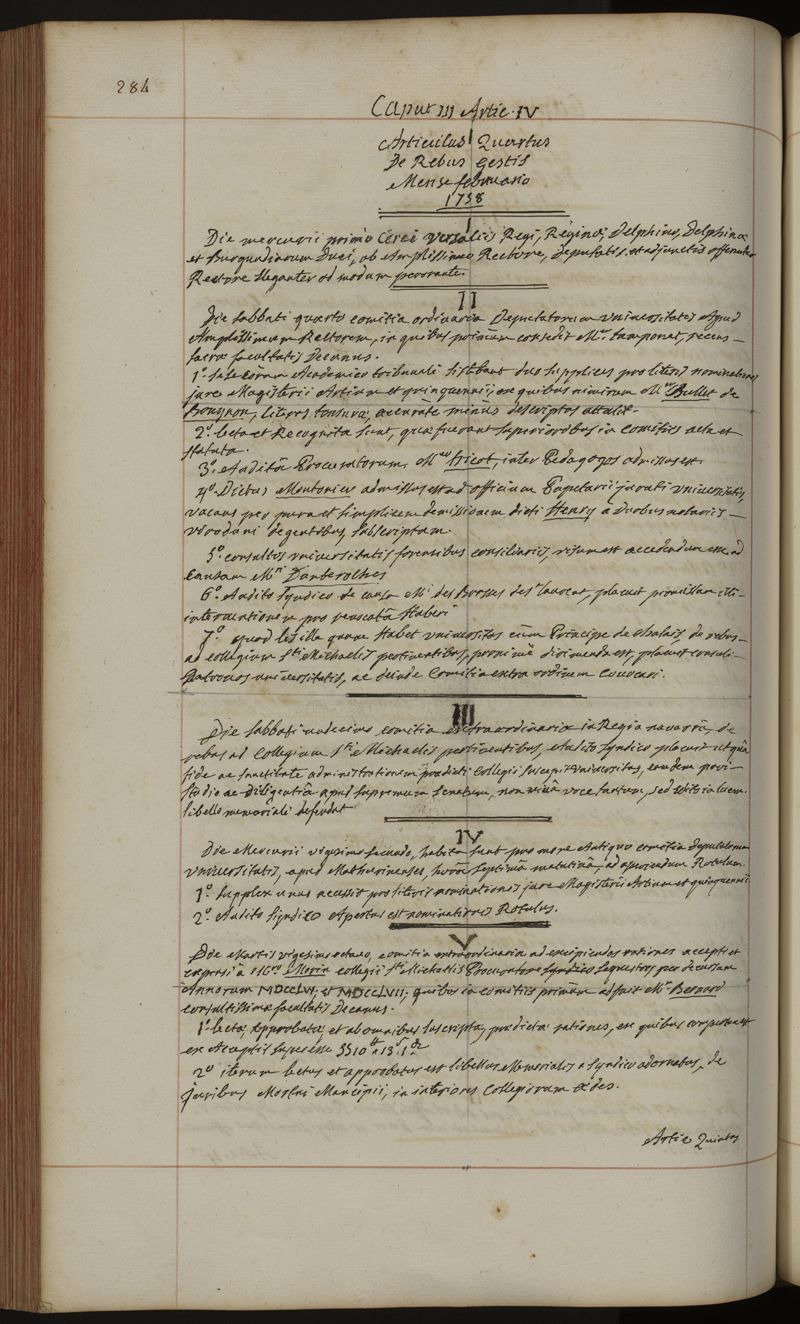 284
Caput III Artic. IV
Articulus Quartus
De Rebus Gestis
Mense februario
1758
I
Die mercurii primo Cerei Versaliis Regi, Reginæ, Delphino, Delphinæ
et Burgundiorum Duci, ab Amplissimo Rectore, deputatis et adjunctis offeruntur
Rectore eleganter ad modum perorante.
II
Die sabbati quarto comitia ordinaria Deputatorum universitatis Apud
Amplissimum Rectorem, in quibus primum consedit Mr. tamponet, recens
sacræ facultatis Decanus.
1o. sese coram Academico tribunali sistebant duo supplices pro literis nominationis
jure Magisterii Artium et quinquennii, ex quibus nimirum Mr. Bullet de
Bougnon, literas tonsuræ, accurate minus descriptas attulit.
2o. lecta et Recognita sunt, quæ fuerant superioribus in Comitiis acta et
statuta.
3o. Audita Procuratorum, Mr. tricot, inter Pedagogos admissus est.
4o. Dictus Montorier admissus est ad officium Papetarii jurati universitatis
vacans per puram et simplicem demissionem dicti Henry a duobus notariis
viroduni degentibus, subscriptam.
5o. consultis universitatis forensibus consiliariis, visum est accedendum esse ad
Causam Mri Danberolhes
6o. Audito Syndico de causa Mi des Borsses des laurent, placuit
interventionem pro revocata Haberi
7o. quod lis illa quam Habet universitas cum Principe de chalais, de rebus
ad collegium Sti. Michaelis pertinentibus, proxime dirimenda est, placuit consuli
Patronos universitatis, ac deinde Comitia extra ordinem Convocari.
III
Die sabbati undecimo comitia extraordinaria in Regia navarra, de
rebus ad Collegium Sti Michaelis pertinentibus, Audito Syndico placuit ut qua
fide ac sanctitate administrationem prædicti Collegii suscepit universitas, eandem pari
studio ac diligentia apud supremum senatum, non viva voce tantum, sed edito in lucem
libello memoriali defendat
IV
Die Mercurii vigesimo secundo, habita sunt pro more Antiquo comitia deputatorum
universitatis, apud Mathurinenses, hora septima matutina, ad aperiendum Rotulum.
1o. supplex unus accessit pro literis nominationis jure Magisterii Artium et quinquennii
2o. Audito Syndico Apertus est nominationis Rotulus.
V
Die Martis vigesimo octavo, comitia extraordinaria ad excipiendas rationes accepti et
expensi a Mro Morin collegii Sti Michaelis Procuratore Syndico sequestro per decursum
Annorum MDCCLVI, et MDCCLVII; quibus in comitiis primum adfuit Mr. Bernard
consultissimæ facultatis Decanus.
1o lectæ, Approbatæ, et ab omnibus suscriptæ, prædictæ rationes, ex quibus compertum est
ex Acceptis superesse 3510 tt 13 s 1 d
2o iterum lectus et approbatus est libellus Memorialis a Syndico adornatus, de
juribus Nostri Mancipii, in interiores Collegiorum ædes.
Artic Quintus